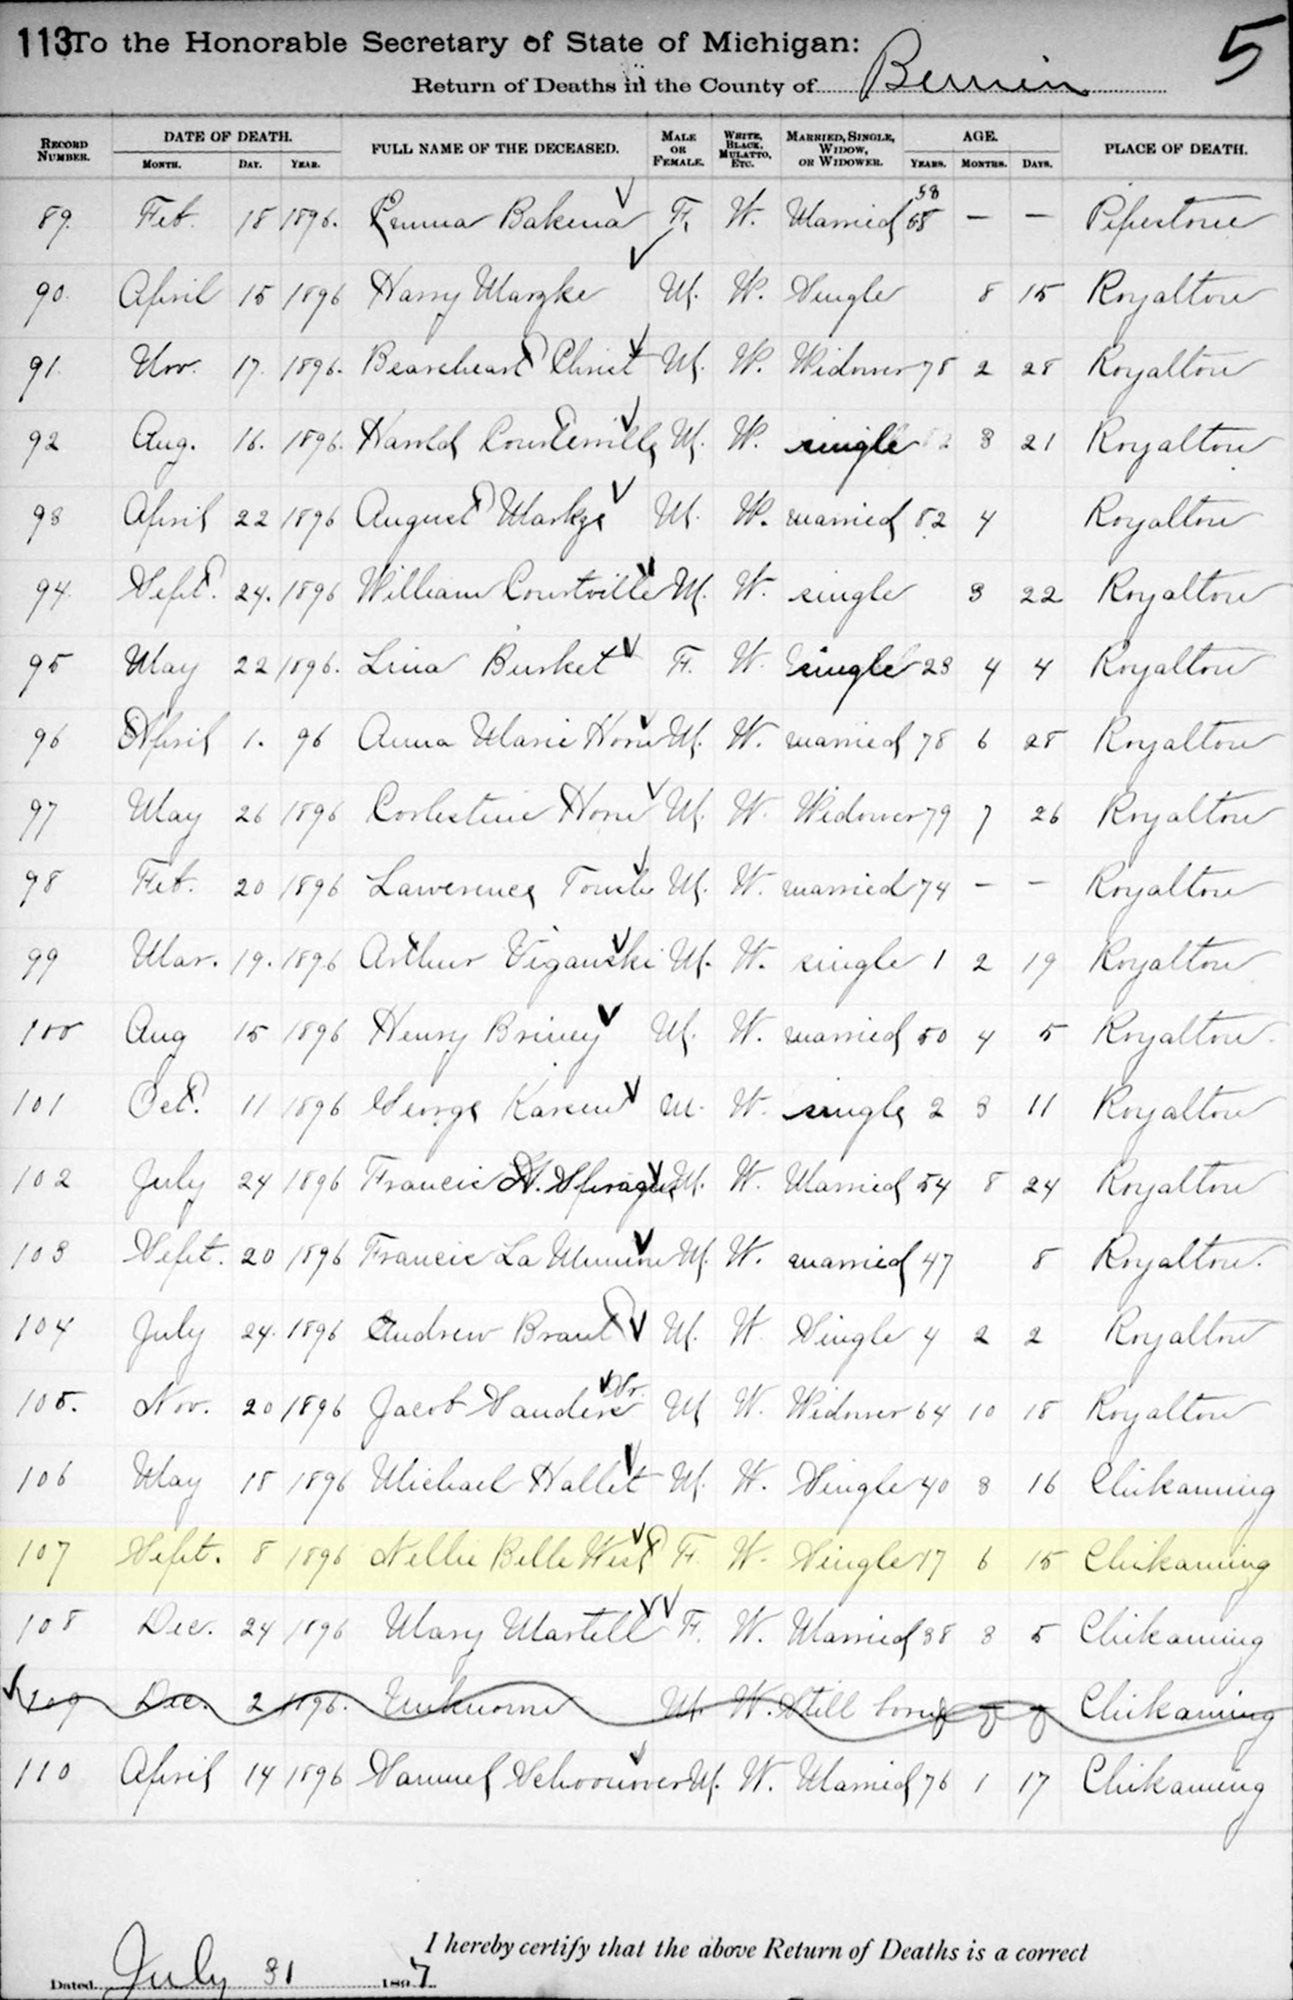 113 To the Honorable Secretary of State of Michigan: 5
Return of Deaths in the County of Berrien
RECORD NUMBER. DATE OF DEATH. MONTH. DAY. YEAR. FULL NAME OF THE DECEASED. MALE OR FEMALE. WHITE, BLACK, MULATTO, ETC. MARRIED, SINGLE, WIDOW, OR WIDOWER. AGE. YEARS. MONTHS. DAYS. PLACE OF DEATH.
58
89. Feb. 18 1896. Emma Bakema F. W. Married — — Pipestone
90. April 15 1896 Harry Marzke M. W. Single 8 15 Royalton
91. Nov. 17. 1896. Christ M. W. Widower 78 2 28 Royalton
92 Aug. 16. 1896. Harold Courtemille M. W. single 3 21 Royalton
93 April 22 1896 August M. W. married 52 4 Royalton
94. Sept. 24. 1896 William Courtville M. W. single 3 22 Royalton
95 May 22 1896. Lina Busket F. W. single 23 4 4 Royalton
96 April 1. 96 Anna Marie Horn M. W. married 78 6 28 Royalton
97 May 26 1896 Horn M. W. Widower 79 7 26 Royalton
98 Feb. 20 1896 Lawerence M. W. married 74 — — Royalton
99 Mar. 19. 1896 Arthur Viganski M. W. single 1 2 19 Royalton
100 Aug 15 1896 Henry Briney M. W. married 50 4 5 Royalton.
101 Oct. 11 1896 George M. W. single 2 3 11 Royalton
102 July 24 1896 Francis H. Sprague M. W. Married 54 8 24 Royalton
103 Sept. 20 1896 Francis La M. W. married 47 8 Royalton.
104 July 24. 1896 Andrew Brant M. W. Single 4 2 2 Royalton
105. Nov. 20 1896 Jacob Sanders Sr. M W. Widower 64 10 18 Royalton
106 May 18 1896 Michael Hallet M. W. Single 40 3 16 Chikaming
107 Sept. 8 1896 Nellie Belle West F. W. Single 17 6 15 Chikaming
108 Dec. 24 1896 Mary Martell F. W. Married 38 3 5 Chikaming
109 Dec. 2 1896. Unknown M. W. Still born 0 0 0 Chikaming
110 April 14 1896 Samuel Schoonover M. W. Married 76 1 17 Chikaming
I hereby certify that the above Return of Deaths is a correct
Dated July 31 1897.